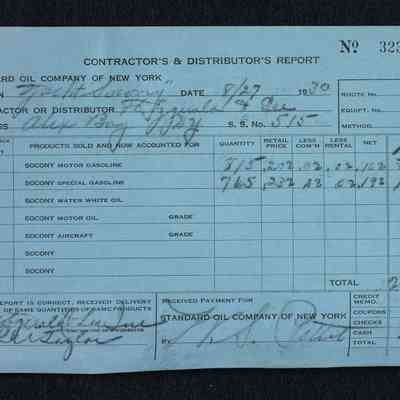 CONTRACTOR'S & DISTRIBUTOR'S REPORT
No 323
ARD OIL COMPANY OF NEW YORK
"Yacht Socony" DATE 8/27 1930
ROUTE NO.
ACTOR OR DISTRIBUTOR & Son
EQUIPT. NO.
SS Alex Bay N.Y. S. S. NO. 515
METHOD
PRODUCTS SOLD AND NOW ACCOUNTED FOR QUANTITY RETAIL PRICE LESS COM'N LESS RENTAL NET
SOCONY MOTOR GASOLINE 815 .202 .02 .02 .162
SOCONY SPECIAL GASOLINE 765 .232 .02 .02 .192
SOCONY WATER WHITE OIL
SOCONY MOTOR OIL GRADE
SOCONY AIRCRAFT GRADE
SOCONY
SOCONY
TOTAL
EPORT IS CORRECT, RECEIVED DELIVERY
OF SAME QUANTITIES OF SAME PRODUCTS
RECEIVED PAYMENT FOR
STANDARD OIL COMPANY OF NEW YORK
BY
CREDIT MEMO.
COUPONS
CHECKS
CASH
TOTAL